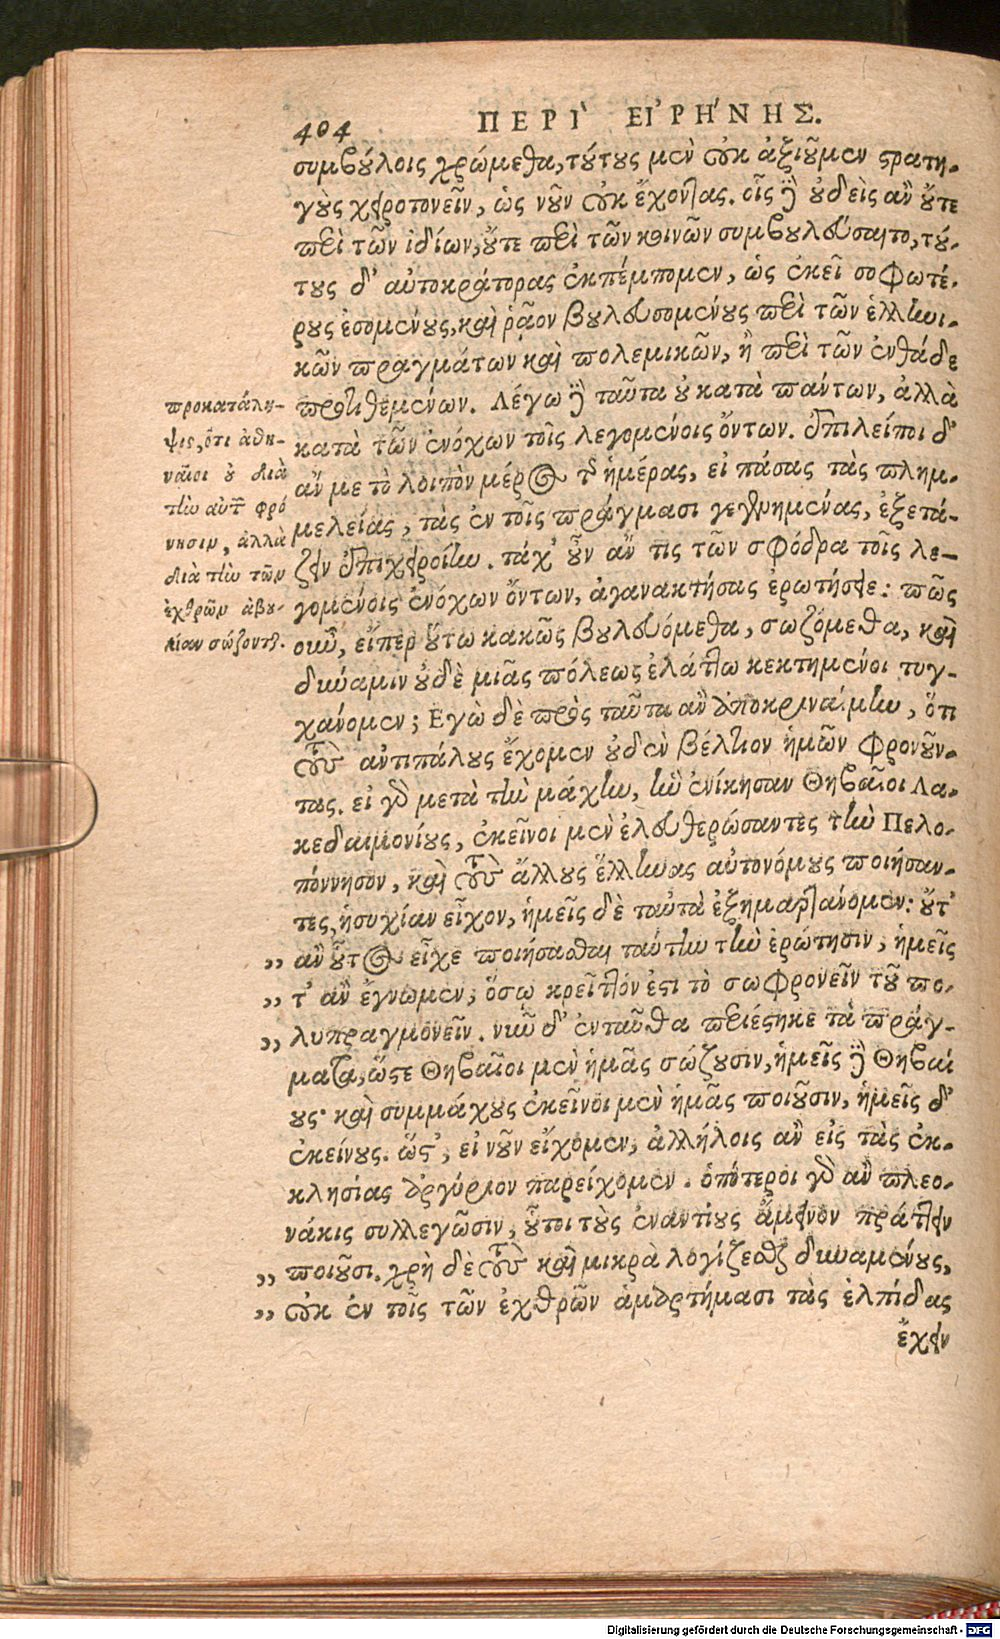 404 ΠΕΡΙ` ΕΙ᾿ΡΗ´ΝΗΣ.
συμβούλοις χρώμεθα, τούτους μὲν οὐκ ἀξιοῦμεν στρατη-
γοὺς χειροτονεῖν, ὡς νοῦν οὐκ ἔχοντας. οἷς δὲ οὐδεὶς ἂν οὔτε
περὶ τῶν ἰδίων, οὔτε περὶ τῶν κοινῶν συμβουλεύσαιτο, τού-
τους δ' αὐτοκράτορας ἐκπέμπομεν, ὡς ἐκεῖ σοφωτέ-
ρους ἐσομένους, καὶ ῥᾷον βουλευσομένους περὶ τῶν ἑλληνι-
κῶν πραγμάτων καὶ πολεμικῶν, ἢ περὶ τῶν ἐνθάδε
προτιθεμένων. Λέγω δὲ ταῦτα οὐ κατὰ πάντων, ἀλλὰ
κατὰ τῶν ἐνόχων τοῖς λεγομένοις ὄντων. ἐπιλείποι δ'
ἄν με τὸ λοιπὸν μέρος τῆς ἡμέρας, εἰ πάσας τὰς πλημ-
μελείας, τὰς ἐν τοῖς πράγμασι γεγενημένας, ἐξετά-
ζειν ἐπιχειροίην. τάχ' οὖν ἄν τις τῶν σφόδρα τοῖς λε-
γομένοις ἐνόχων ὄντων, ἀγανακτήσας ἐρωτήσειε: πῶς
οὖν, εἴπερ οὕτω κακῶς βουλευόμεθα, σωζόμεθα, καὶ
δύναμιν οὐδὲ μιᾶς πόλεως ἐλάττω κεκτημένοι τυγ-
χάνομεν; Ἐγὼ δὲ πρὸς ταῦτα ἂν ἀποκριναίμην, ὅτι
τοὺς ἀντιπάλους ἔχομεν οὐδὲν βέλτιον ἡμῶν φρονοῦν-
τας. εἰ γὰρ μετὰ τὴν μάχην, ἣν ἐνίκησαν Θηβαῖοι Λα-
κεδαιμονίους, ἐκεῖνοι μὲν ἐλευθερώσαντες τὴν Πελο-
πόννησον, καὶ τοὺς ἄλλους ἕλληνας αὐτονόμους ποιήσαν-
τες, ἡσυχίαν εἶχον, ἡμεῖς δὲ ταὐτὰ ἐξημαρτάνομεν: οὔτ'
,, ἂν οὗτος εἶχε ποιήσασθαι ταύτην τὴν ἐρώτησιν, ἡμεῖς
,, τ' ἂν ἔγνωμεν, ὅσῳ κρεῖττόν ἐστι τὸ σωφρονεῖν τοῦ πο-
,, λυπραγμονεῖν. νῦν δ' ἐνταῦθα περιέστηκε τὰ πράγ-
ματα, ὥστε Θηβαῖοι μὲν ἡμᾶς σώζουσιν, ἡμεῖς δὲ Θηβαί
ους· καὶ συμμάχους ἐκεῖνοι μὲν ἡμᾶς ποιοῦσιν, ἡμεῖς δ'
ἐκείνους. ὥστ', εἰ νοῦν εἴχομεν, ἀλλήλοις ἂν εἰς τὰς ἐκ-
κλησίας ἀργύριον παρείχομεν. ὁπότεροι γὰρ ἂν πλεο-
νάκις συλλεγῶσιν, οὗτοι τοὺς ἐναντίους ἄμεινον πράττειν
,, ποιοῦσι. χρὴ δὲ τοὺς καὶ μικρὰ λογίζεσθαι δυναμένους,
,, οὐκ ἐν τοῖς τῶν ἐχθρῶν ἁμαρτήμασι τὰς ἐλπίδας
ἔχειν
προκατάλη-
ψις, ὅτι ἀθη-
ναῖοι οὐ διὰ
τὴν αὐτῶν φρό
νησιν, ἀλλὰ
διὰ τὴν τῶν
ἐχθρῶν ἀβου-
λίαν σώζονται.
Digitalisierung gefördert durch die Deutsche Forschungsgemeinschaft - DFG